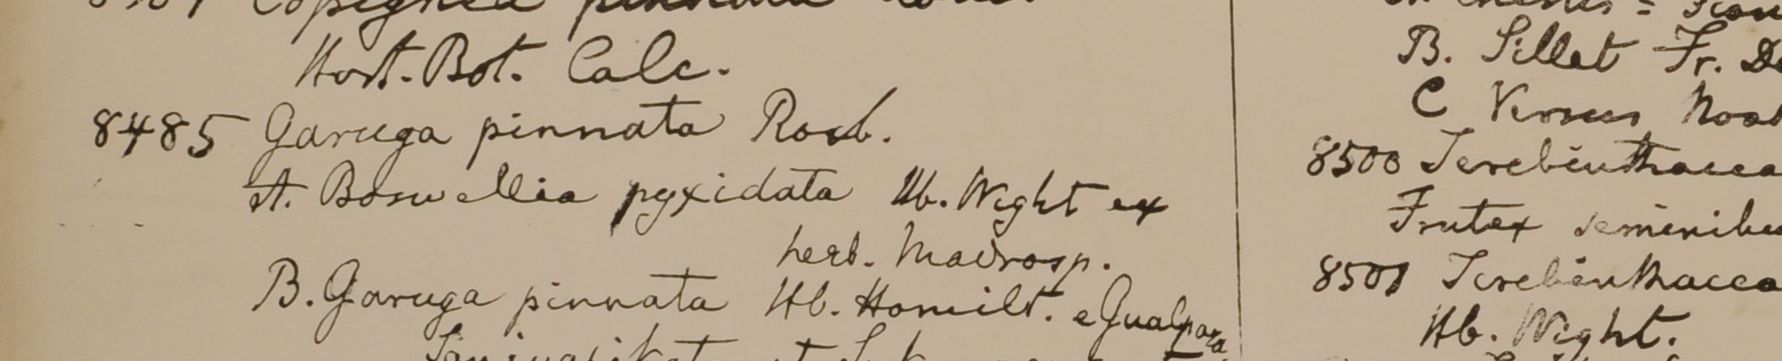 pinnata
Hort. Bot. Calc.
8485 Garuga pinnata Roxb.
A. Boswellia pyxidata Hb. Wight ex
herb. Madrasp.
B. Garuga pinnata Hb. Hamilt. e Gualpara
B. Sillet Fr. De
C
8500 Terebinthacea
Frutex seminibu
8501 Terebinthacea
Hb. Wight.